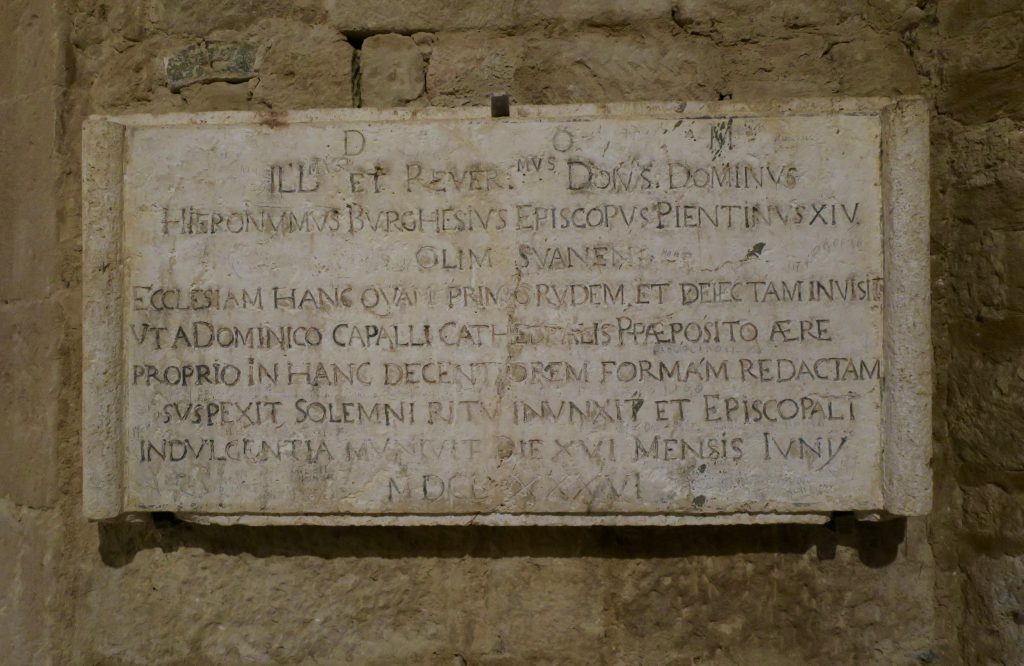 D O M
ILL.MVS ET REVER.MVS DOŃUS. DOMINVS
HIERONYMVS BVRGHESIVS EPISCOPVS PIENTINVS XIV.
OLIM SVANENS
ECCLESIAM HANC QVAM PRIMO RVDEM, ET DEIECTAM INVISIT
VT A DOMINICO CAPALLI CATHEDRALIS PPÆPOSITO ÆRE
PROPRIO IN HANC DECENTIOREM FORMAM REDACTAM
SVSPEXIT SOLEMNI RITV INVNXIT ET EPISCOPALI
INDVLGENTIA MVNIVIT DIE XVI MENSIS IVNY